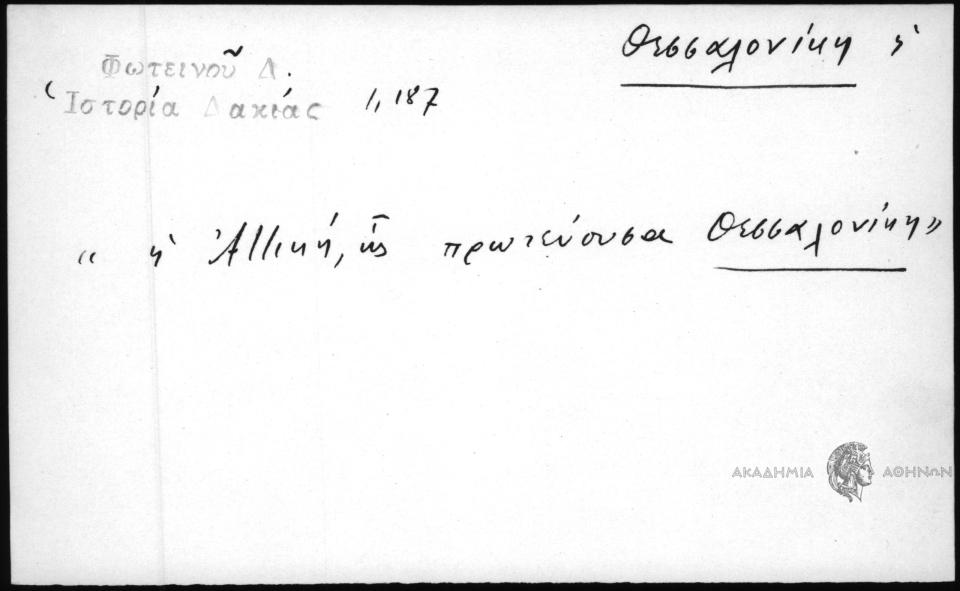 Θεσσαλονίκη ἡ
Φωτεινοῦ Δ.
Ἱστορία Δακίας 1, 187
« ἡ Ἀττική, ἧς πρωτεύουσα Θεσσαλονίκη»
ΑΚΑΔΗΜΙΑ ΑΘΗΝΩΝ